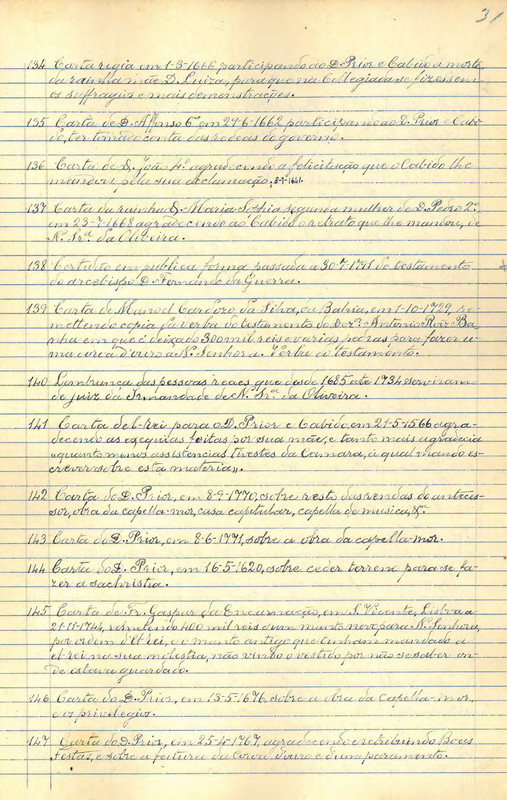 31
134 Carta regia em 1-3-1666 participando ao D. Prior e Cabido a morte
da rainha mãe D. Luiza, para que na Collegiada se fizessem
os suffragios e mais demonstrações.
135 Carta de D. Affonso 6º em 29-6-1662 participando ao D. Prior e Cabi-
do, ter tomado conta das redeas do governo.
136 Carta de D. João 4º agradecendo a felicitação que o Cabido lhe
mandou pela sua acclamação, 8-1-1641.
137 Carta da rainha D. Maria Sophia segunda mulher de D. Pedro 2º,
em 23-7-1668 agradecendo ao Cabido o retrato que lhe mandou, de
N. Srª da Oliveira.
138 Certidão em publica forma passada a 30-7-1741 do testamento
do arcebispo D. Fernando da Guerra.
139 Carta de Manoel Cardozo da Silva, da Bahia, em 1-10-1729, re-
mettendo copia da verba do testamento do Dr. Antonio Roiz Ba-
nha em que é deixado 300 mil reis e varias pedras, para fazer u-
ma coroa d'ouro a N. Senhora. Verba do testamento.
140 Lembrança das pessoas reaes que desde 1685 até 1734 serviram
de juiz da Irmandade de N. Srª da Oliveira.
141 Carta del-rei para o D. Prior e Cabido, em 21-5-1566 agra-
decendo as exequias feitas por sua mãe, e tanto mais agradecia
«quanto menos assistencias tivestes da Camara, á qual mando es-
crever sobre esta materia».
142 Carta do D. Prior, em 8-9-1770, sobre resto das rendas do anteces-
sor, obra da capella-mor, casa capitular, capella de musica, &ª.
143 Carta do D. Prior, em 8-6-1771, sobre a obra da capella-mor.
144 Carta do D. Prior, em 16-5-1620, sobre ceder terreno para se fa-
zer a sachristia.
145 Carta de Fr. Gaspar da Encarnação, em S. Vicente, Lisboa a
21-11-1744, remettendo 400 mil reis e um manto novo para N. Senhora,
por ordem d'El-rei, e o manto antigo que tinham mandado a
el-rei na sua molestia, não vindo o vestido por não se saber on-
de estava guardado.
146 Carta do D. Prior, em 13-5-1676, sobre a obra da capella-mor,
e os privilegios.
147 Carta do D. Prior, em 25-4-1767, agradecendo e retribuindo Boas
Festas, e sobre a feitura da Coroa d'ouro e d'um paramento.